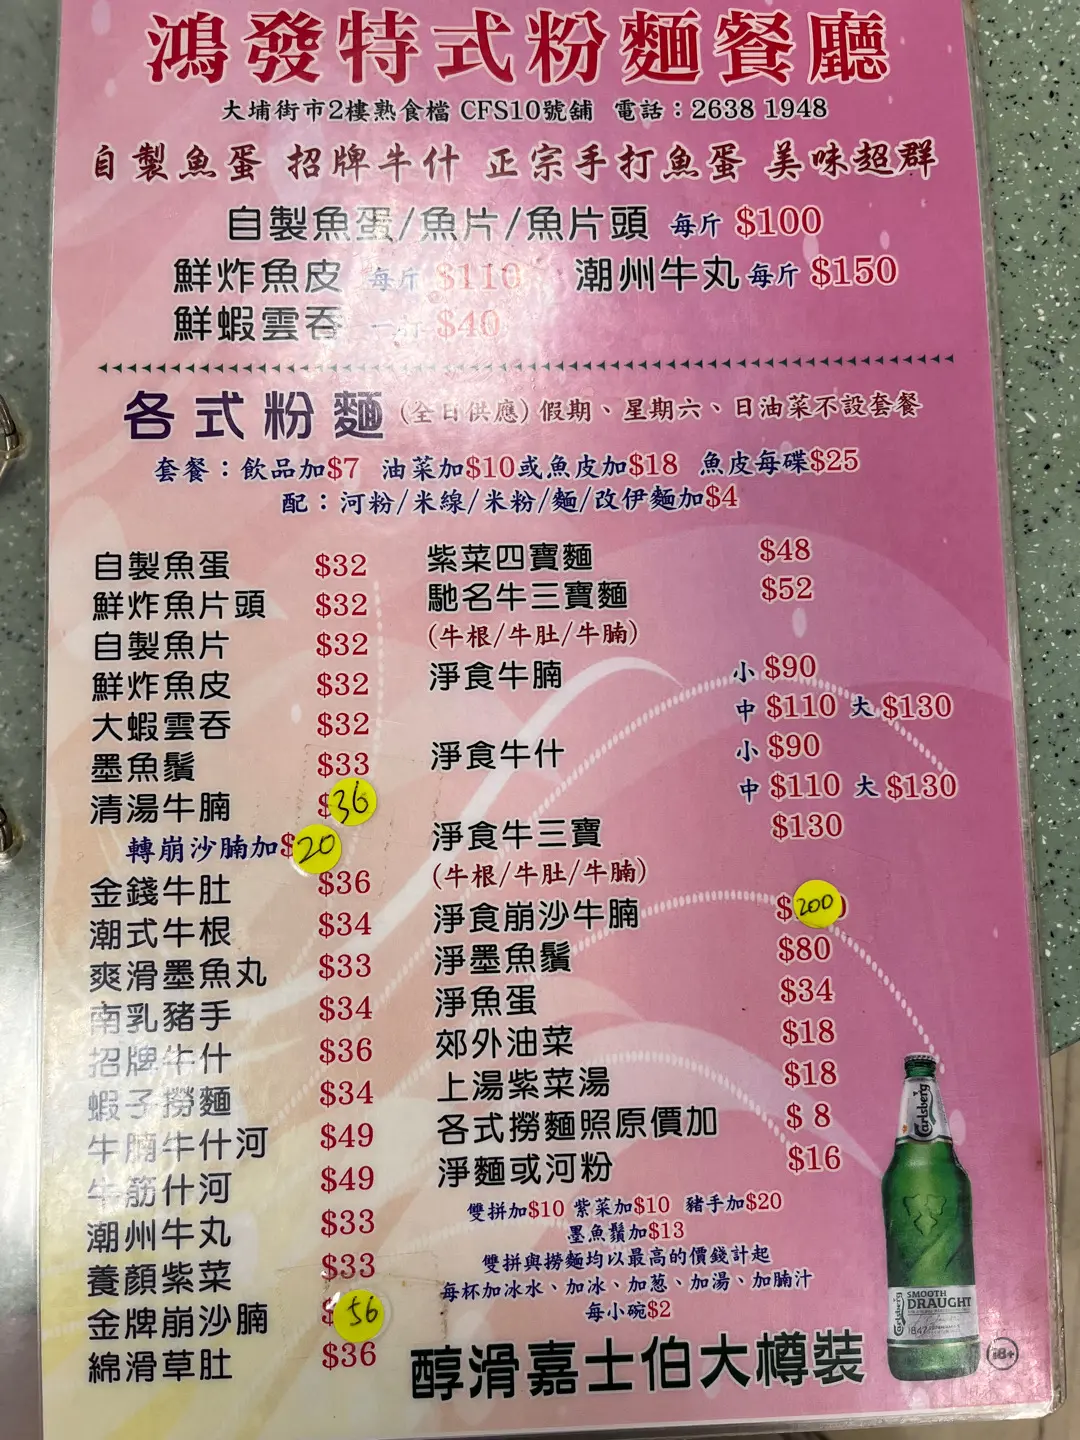 鴻發特式粉麵餐廳
大埔街市2樓熟食檔 CFS10號舖 電話：2638 1948
自製魚蛋 招牌牛什 正宗手打魚蛋 美味超群
自製魚蛋/魚片/魚片頭 每斤 $100
鮮炸魚皮 每斤 $110 潮州牛丸 每斤 $150
鮮蝦雲吞 一打 $40
各式粉麵 (全日供應) 假期、星期六、日油菜不設套餐
套餐：飲品加$7 油菜加$10或魚皮加$18 魚皮每碟$25
配：河粉/米線/米粉/麵/改伊麵加$4
自製魚蛋 $32
鮮炸魚片頭 $32
自製魚片 $32
鮮炸魚皮 $32
大蝦雲吞 $32
墨魚鬚 $33
清湯牛腩 $36
轉崩沙腩加$20
金錢牛肚 $36
潮式牛根 $34
爽滑墨魚丸 $33
南乳豬手 $34
招牌牛什 $36
蝦子撈麵 $34
牛腩牛什河 $49
牛筋什河 $49
潮州牛丸 $33
養顏紫菜 $33
金牌崩沙腩 $56
綿滑草肚 $36
紫菜四寶麵 $48
馳名牛三寶麵 $52
(牛根/牛肚/牛腩)
淨食牛腩 小 $90
中 $110 大 $130
淨食牛什 小 $90
中 $110 大 $130
淨食牛三寶 $130
(牛根/牛肚/牛腩)
淨食崩沙牛腩 $200
淨墨魚鬚 $80
淨魚蛋 $34
郊外油菜 $18
上湯紫菜湯 $18
各式撈麵照原價加 $ 8
淨麵或河粉 $16
雙拼加$10 紫菜加$10 豬手加$20
墨魚鬚加$13
雙拼與撈麵均以最高的價錢計起
每杯加冰水、加冰、加葱、加湯、加腩汁
每小碗$2
醇滑嘉士伯大樽裝
Carlsberg
Carlsberg
SMOOTH
DRAUGHT
1847
18+